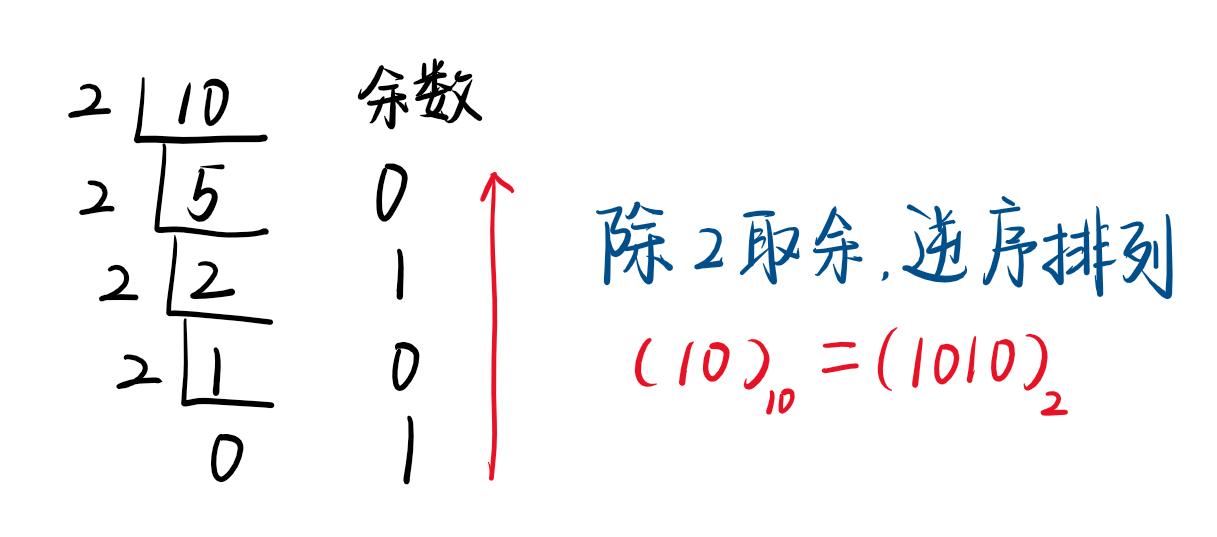 2 10 余数
2 5 0
2 2 1
2 1 0
0 1
除2取余,逆序排列
(10)₁₀=(1010)₂